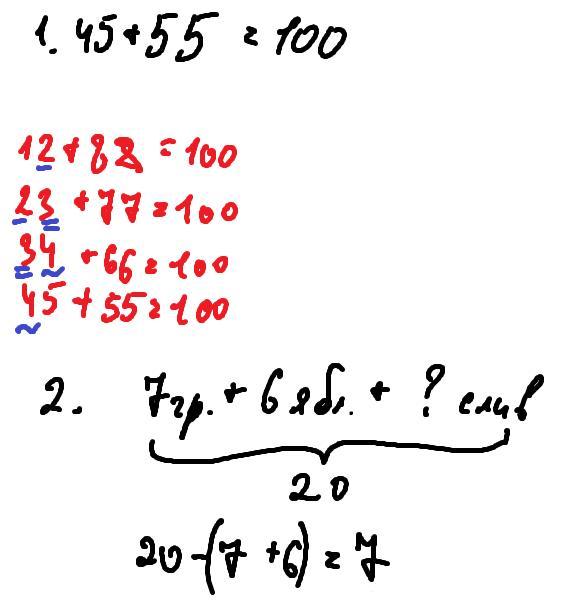 1. 45+55 = 100
12+88 = 100
23 +77 = 100
34 +66 = 100
45 + 55 = 100
2. 7гр. + 6 ябл. + ? слив
20
20-(7+6) = 7